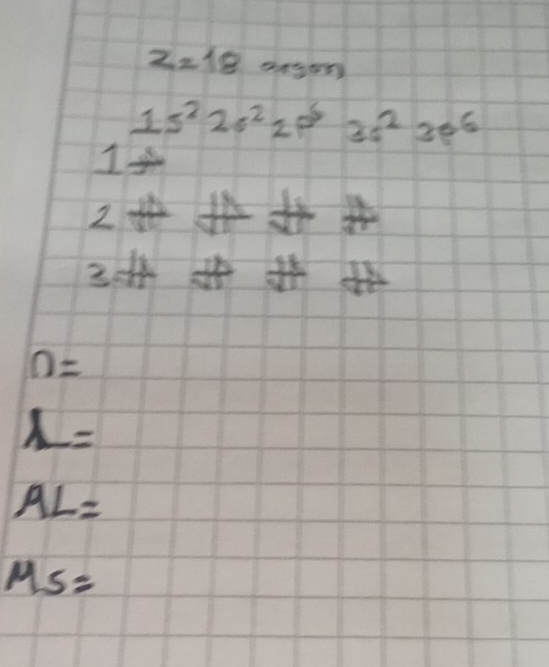 Z=18 argon
1s² 2s² 2p⁶ 3s² 3p⁶
1
2
3
n=
λ=
ML=
MS=